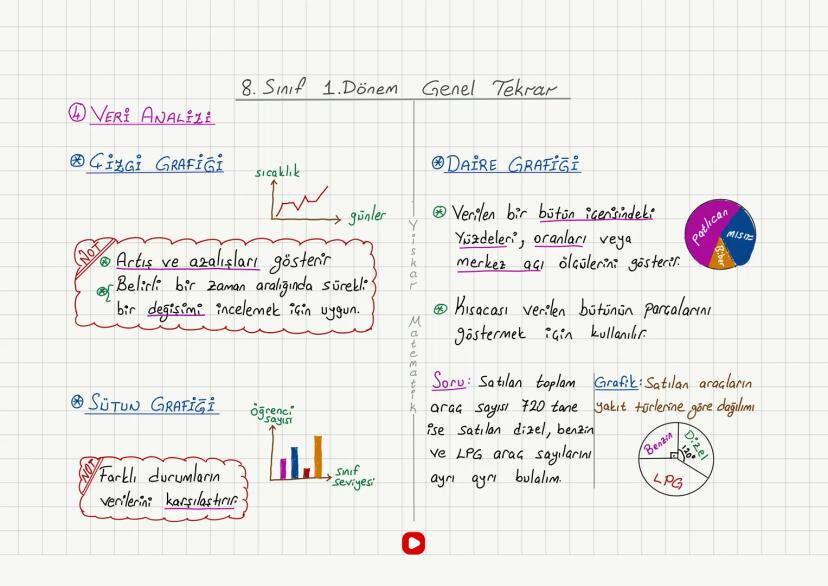 8. Sınıf 1.Dönem Genel Tekrar
4 VERİ ANALİZİ
ÇİZGİ GRAFİĞİ
sıcaklık
günler
NOT
Artış ve azalışları gösterir
Belirli bir zaman aralığında sürekli
bir değişimi incelemek için uygun.
SÜTUN GRAFİĞİ
öğrenci
sayısı
sınıf
seviyesi
NOT
Farklı durumların
verilerini karşılaştırır.
Yiskar Matematik
DAİRE GRAFİĞİ
Verilen bir bütün içerisindeki
Yüzdeleri, oranları veya
merkez açı ölçülerini gösterir.
Patlıcan
mısır
Biber
Kısacası verilen bütünün parçalarını
göstermek için kullanılır.
Soru: Satılan toplam
araç sayısı 720 tane
ise satılan dizel, benzin
ve LPG araç sayılarını
ayrı ayrı bulalım.
Grafik: Satılan araçların
yakıt türlerine göre dağılımı
Benzin
Dizel
120°
LPG